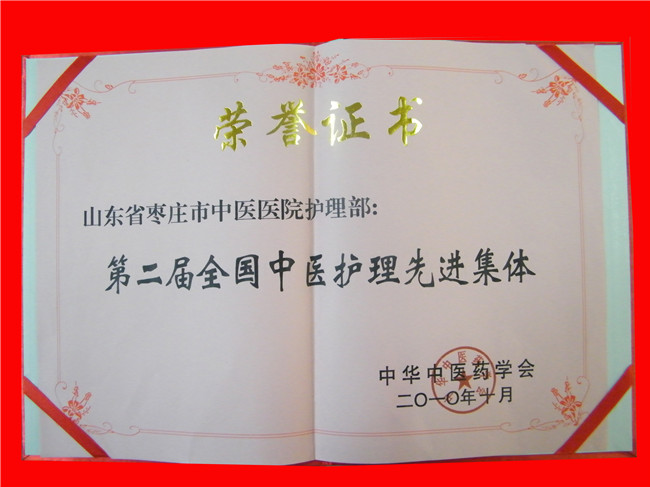 荣誉证书
山东省枣庄市中医医院护理部:
第二届全国中医护理先进集体
中华中医药学会
二〇一〇年十月